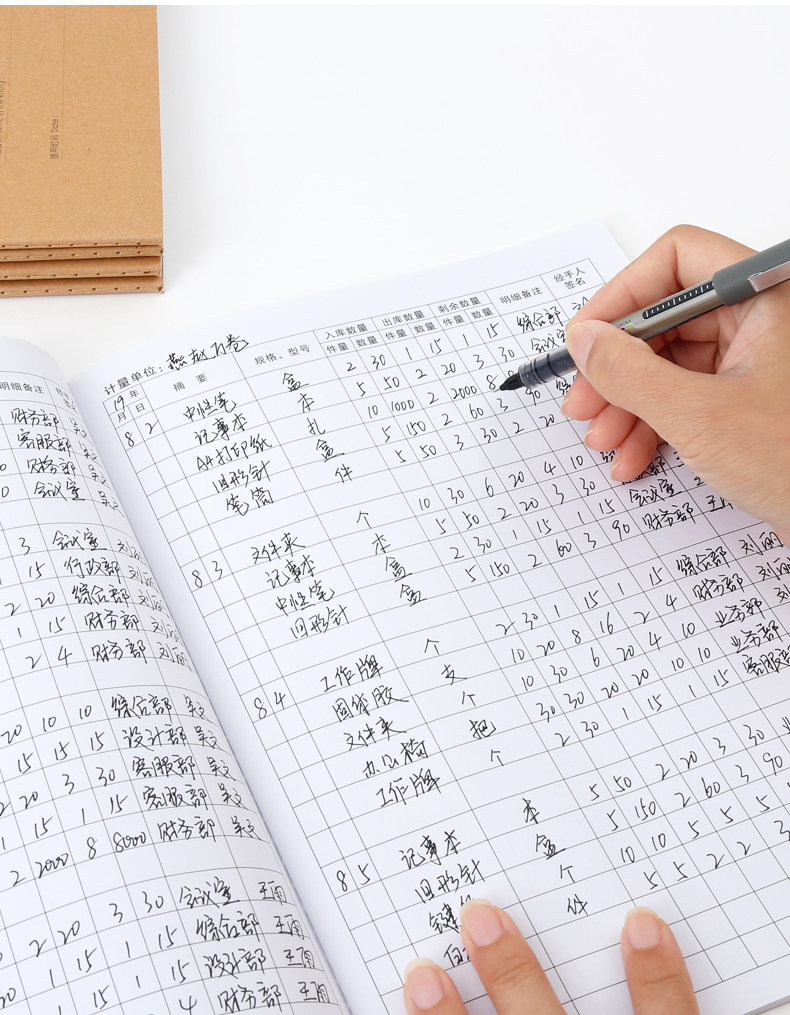 使用时间 Date
明细备注
财务部 吴文
客服部 吴文
财务部 吴文
会议室 吴文
3 会议室 刘丽
1 15 行政部 刘丽
2 20 综合部 刘丽
1 15 财务部 刘丽
2 4 财务部 刘丽
20 10 10 综合部 吴文
15 15 15 设计部 吴文
2 20 3 30 客服部 吴文
1 15 1 15 客服部 吴文
2 2000 8 8000 财务部 吴文
3 30 会议室 王雨
2 20 1 15 综合部 王雨
1 15 1 15 设计部 王雨
1 15 4 财务部 王雨
计量单位：燕赵万卷
19年 摘要 规格、型号 入库数量 出库数量 剩余数量 明细备注 经手人签名
月 日 件量 数量 件量 数量 件量 数量
8 2 中性笔 盒 2 30 1 15 1 15 综合部
记事本 本 5 50 2 20 3 30 会议室
A4打印纸 扎 10 1000 2 2000 8
回形针 盒 5 150 2 60 3 90
笔筒 件 5 50 3 30 2 20
8 3 文件夹 个 10 30 6 20 4 10
记事本 本 5 50 2 20 3 30 会议室
中性笔 盒 2 30 1 15 1 15 财务部 王雨
回形针 盒 5 150 2 60 3 90
8 4 工作牌 个 2 30 1 15 1 15 综合部 刘丽
固体胶 支 10 20 8 16 2 4 财务部 刘丽
文件夹 个 10 30 6 20 4 10 业务部
办公椅 把 30 30 20 20 10 10 业务部
工作牌 个 2 30 1 15 1 15 客服部
8 5 记事本 本 5 50 2 20 3 30
回形针 盒 5 150 2 60 3 90
个 10 10 5 5 5
件 5 5 2 2 3